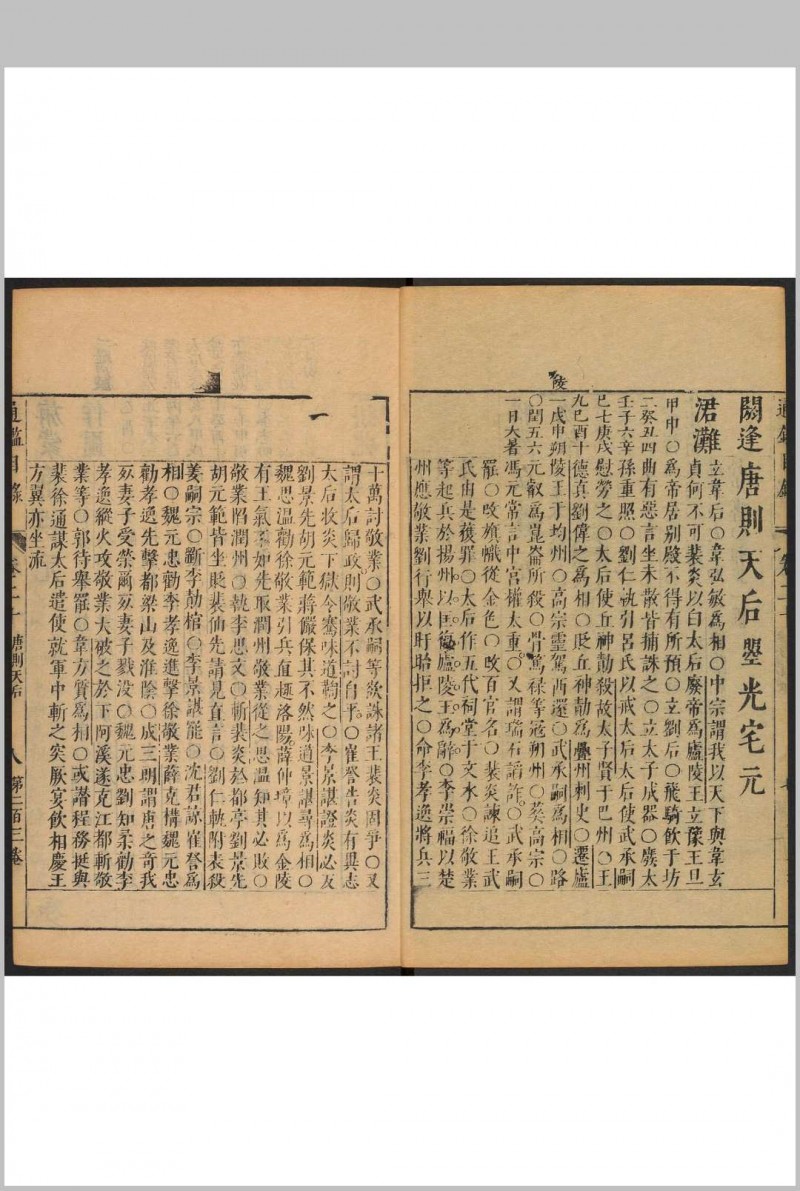 陵
閼逢唐則天后曌光宅元
涒灘
立韋后〇韋弘敏爲相〇中宗謂我以天下與韋玄
貞何不可裴炎以白太后廢帝爲廬陵王立豫王旦
甲申〇爲帝居別殿不得有所預〇立劉后〇飛騎飲于坊
二癸丑四曲有怨言坐未散皆捕誅之〇立太子成器〇廢太
壬子六辛孫重照〇劉仁軌引呂氏以戒太后太后使武承嗣
巳七庚戌慰勞之〇太后使丘神勣殺故太子賢于巴州〇王
九巳酉十德真劉禕之爲相〇貶丘神勣爲疊州刺史〇遷廬
一戊申朔陵王于均州〇高宗靈駕西還〇武承嗣爲相〇路
〇閏五六元叡爲崑崙所殺〇骨篤禄等冦朔州〇葬高宗〇
一日大暑馮元常言中宫權太重〇又謂瑞石謟詐〇武承嗣
罷〇改旗幟從金色〇改百官名〇裴炎諫追王武
氏由是獲罪〇太后作五代祠堂于文水〇徐敬業
等起兵於揚州以匡復廬陵王爲辭〇李崇福以楚
州應敬業劉行舉以盱眙拒之〇命李孝逸將兵三
十萬討敬業〇武承嗣等欲誅諸王裴炎固爭〇又
謂太后歸政則敬業不討自平〇崔詧告炎有異志
太后收炎下獄令騫味道鞫之〇李景諶證炎必反
劉景先胡元範蔣儼保其不然味道景諶尋爲相〇
魏思温勸徐敬業引兵直趣洛陽薛仲璋以爲金陵
有王氣不如先取潤州敬業從之思温知其必敗〇
敬業䧟潤州〇執李思文〇斬裴炎於都亭劉景先
胡元範皆坐貶裴伷先請見直言〇劉仁軌附表殺
姜嗣宗〇斲李勣棺〇李景諶罷〇沈君諒崔詧爲
相〇魏元忠勸李孝逸進擊徐敬業薛克構魏元忠
勸孝逸先擊都梁山及淮隂〇成三朗謂唐之奇我
死妻子受榮爾死妻子戮没〇魏元忠劉知柔勸李
孝逸縱火攻敬業大破之於下阿溪遂克江都斬敬
業等〇郭待舉罷〇韋方質爲相〇或譖程務挺與
裴徐通謀太后遣使就軍中斬之突厥宴飲相慶王
方翼亦坐流
通鑑目録
唐則天后
八
第二百三卷